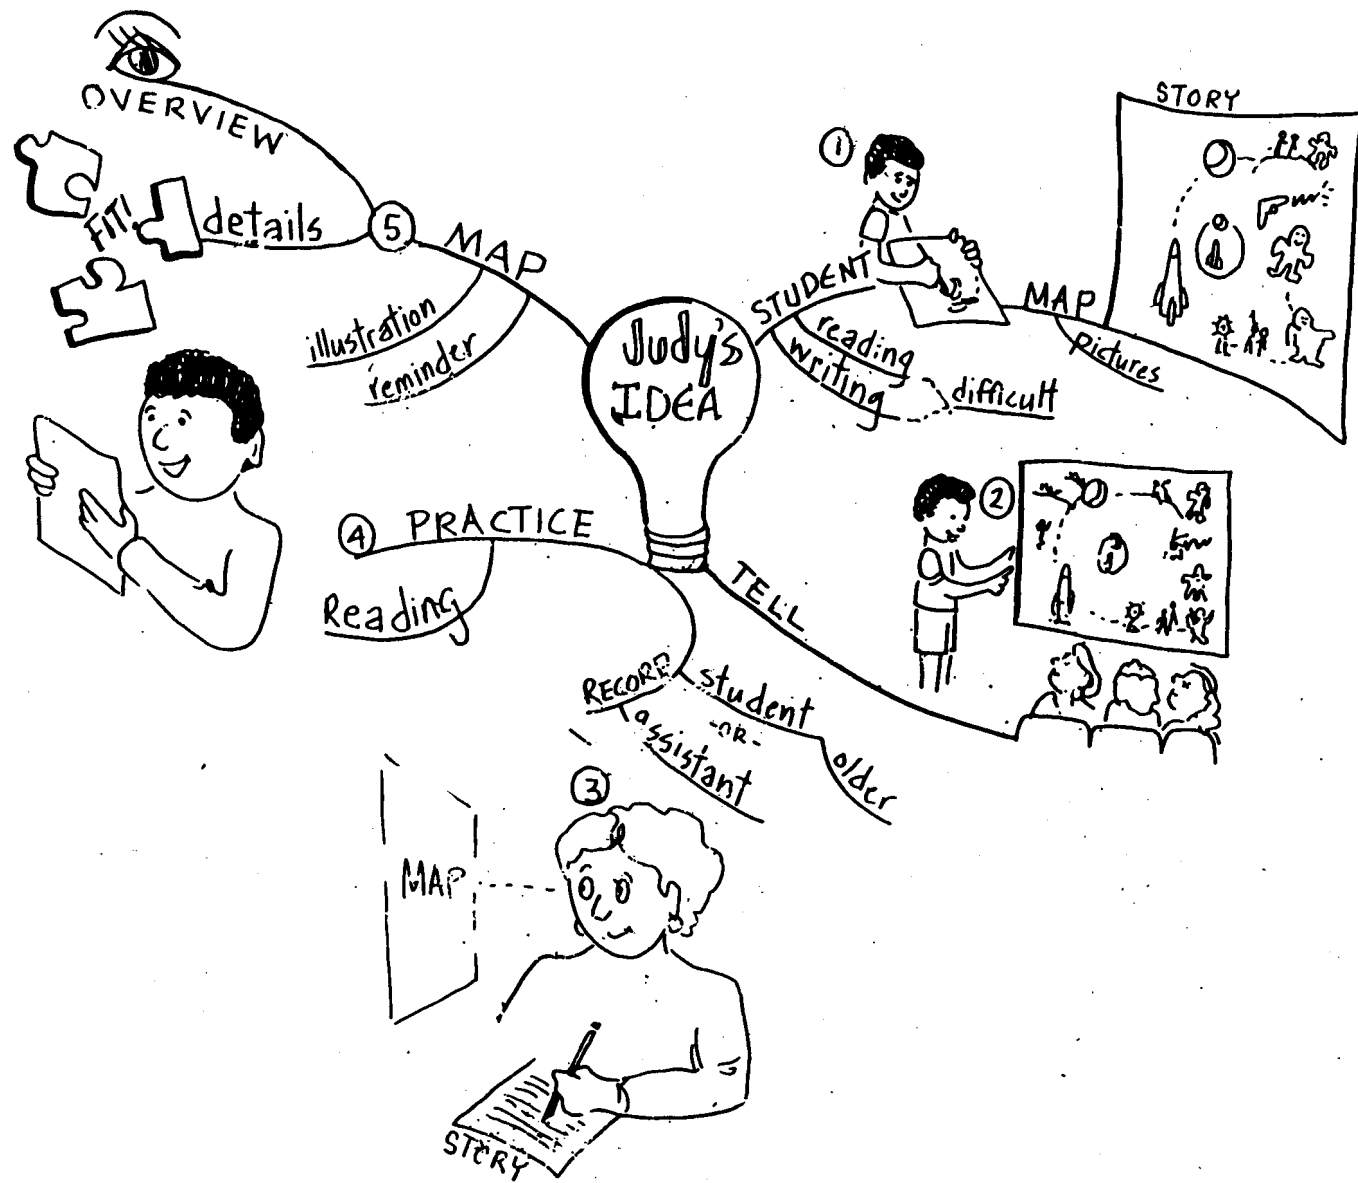 Judy's
IDEA
1
STUDENT
reading
writing
difficult
MAP
pictures
STORY
2
TELL
3
RECORD
student
-OR-
assistant
older
MAP
STORY
4
PRACTICE
Reading
5
MAP
illustration
reminder
OVERVIEW
details
FIT!